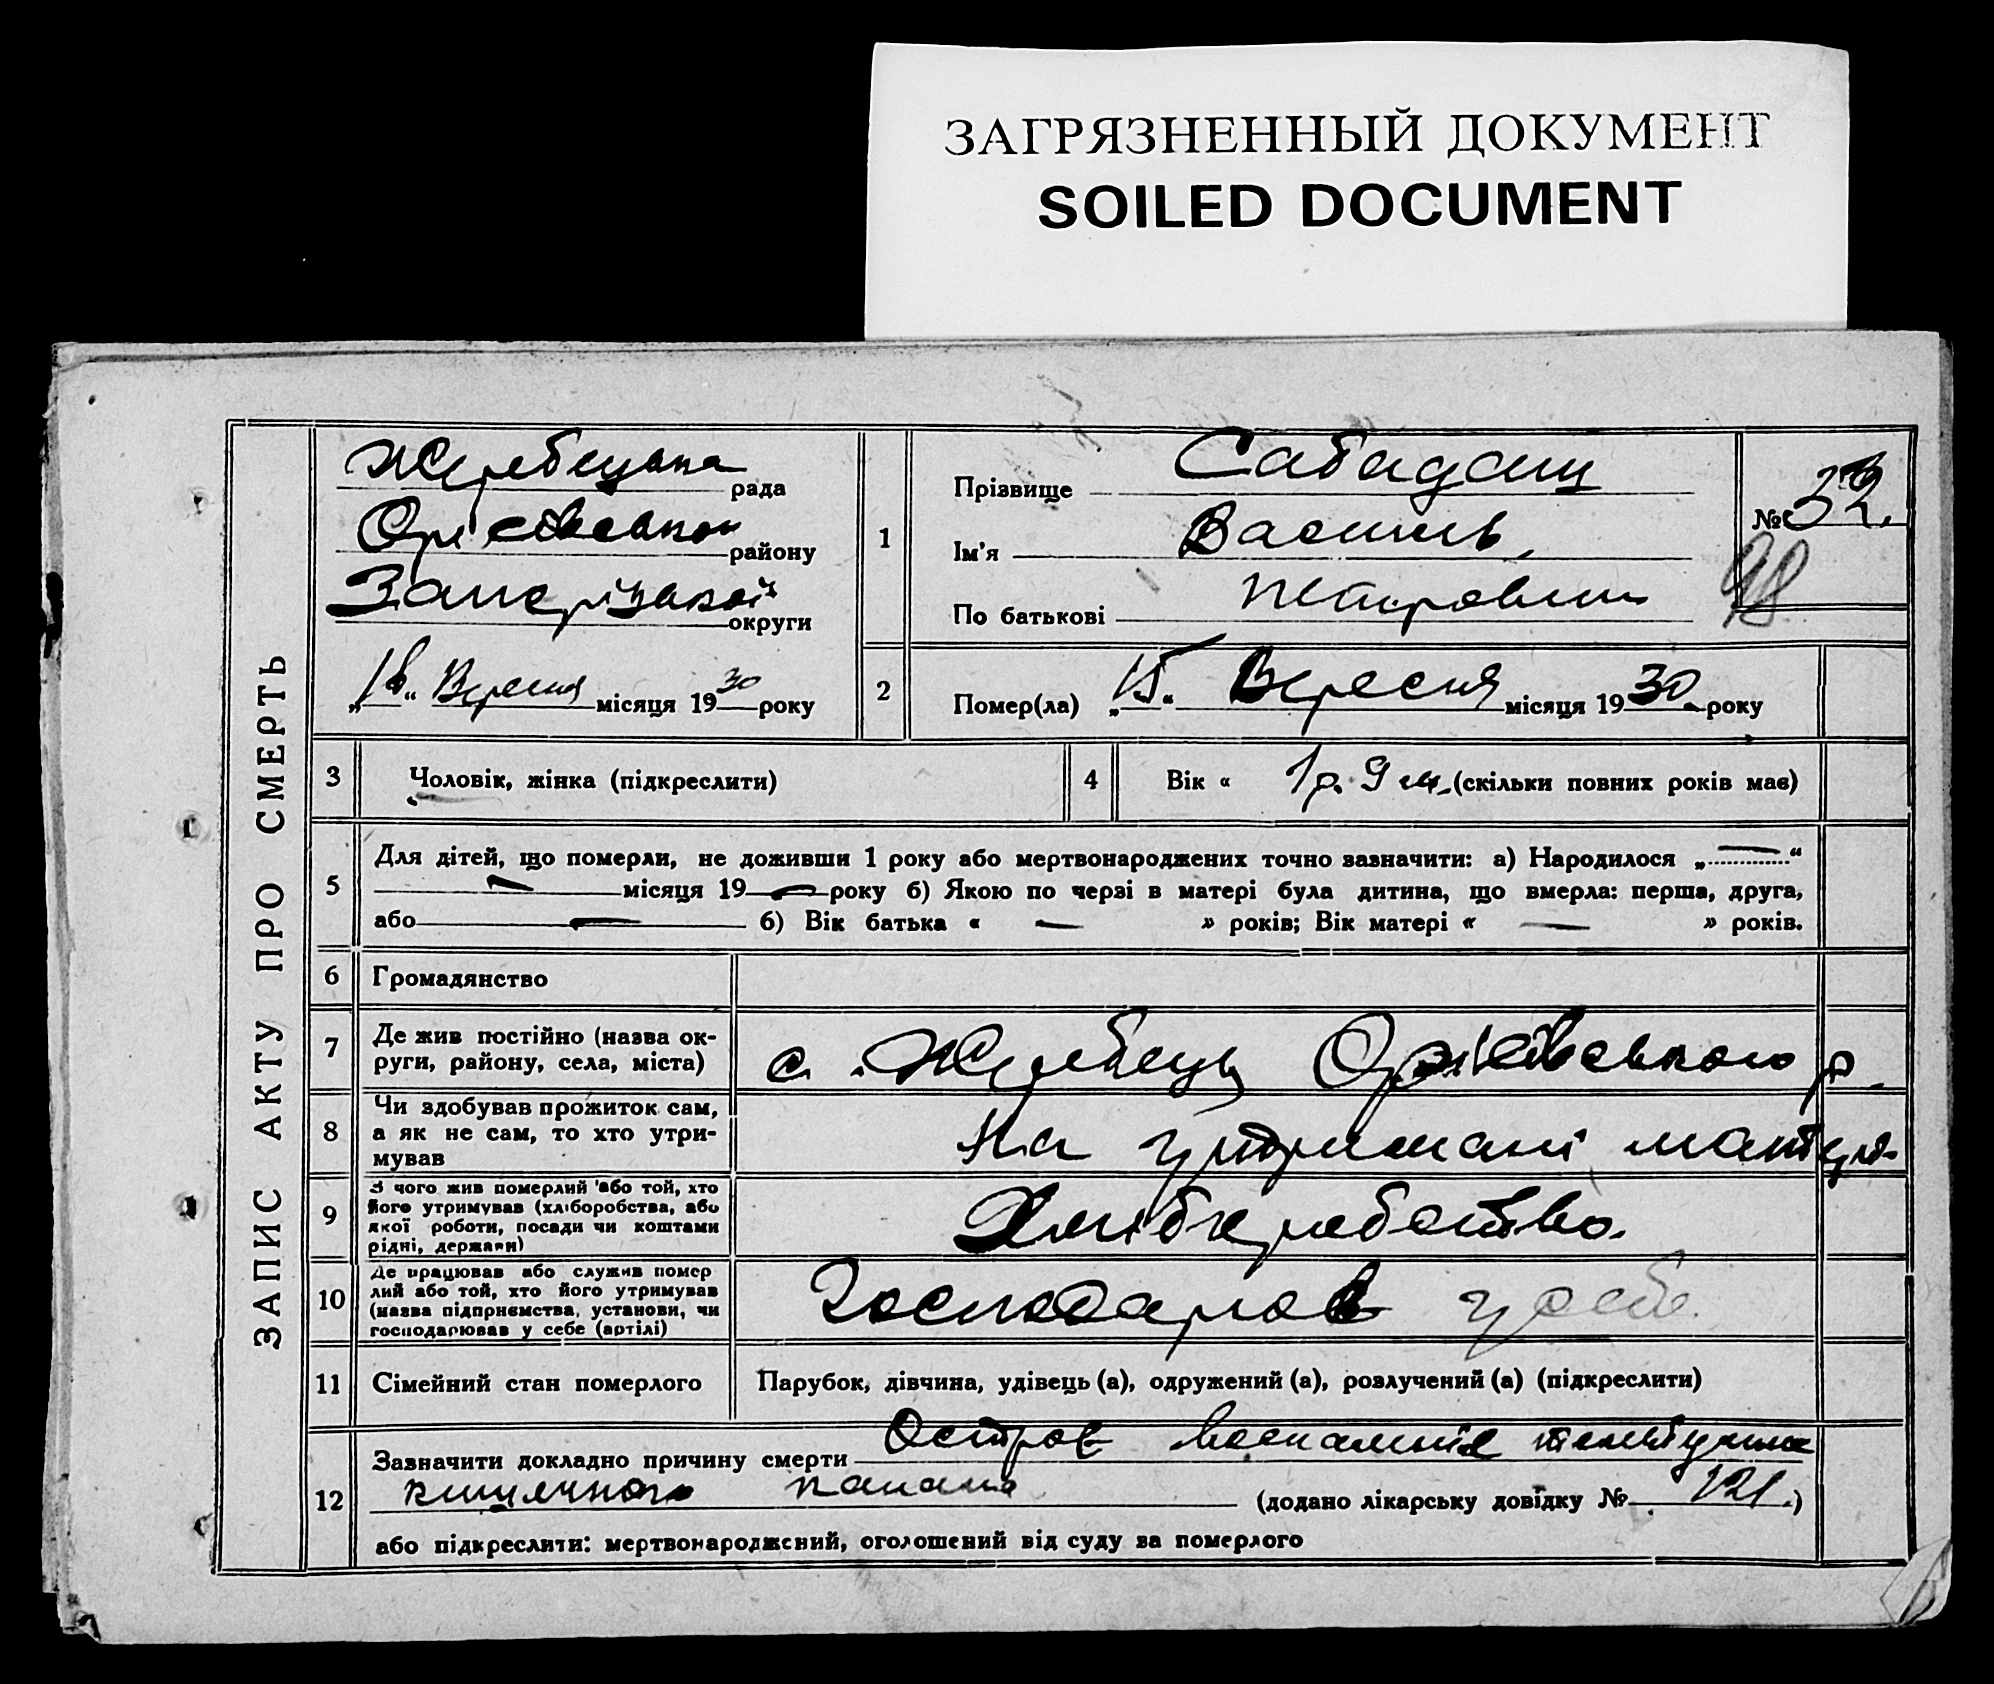 ЗАГРЯЗНЕННЫЙ ДОКУМЕНТ
SOILED DOCUMENT
ЗАПИС АКТУ ПРО СМЕРТЬ
Жеребецька рада
Оріхівської району
Запорізької округи
„16“ Вересня місяця 1930 року
1
Прізвище Сабадаш
Ім'я Василь
По батькові Петрович
№ 32.
98
2
Помер(ла) „15“ Вересня місяця 1930 року
3
Чоловік, жінка (підкреслити)
4
Вік « 1 р. 9 м. (скільки повних років має)
5
Для дітей, що померли, не доживши 1 року або мертвонароджених точно зазначити: а) Народилося „—“
— місяця 19— року б) Якою по черзі в матері була дитина, що вмерла: перша, друга,
або — б) Вік батька « — » років; Вік матері « — » років.
6
Громадянство
7
Де жив постійно (назва ок-
руги, району, села, міста)
с. Жеребець Оріхівського р.
8
Чи здобував прожиток сам,
а як не сам, то хто утри-
мував
На утримані матері
9
З чого жив померлий або той, хто
його утримував (хліборобства, або
якої роботи, посади чи коштами
рідні, держави)
Хліборобство.
10
Де працював або служив помер
лий або той, хто його утримував
(назва підприємства, установи, чи
господарював у себе (артілі)
Господарював у себе.
11
Сімейний стан померлого
Парубок, дівчина, удівець (а), одружений (а), розлучений (а) (підкреслити)
12
Зазначити докладно причину смерти Остров воспаление
кишечного канала (додано лікарську довідку № 121.)
або підкреслити: мертвонароджений, оголошений від суду за померлого